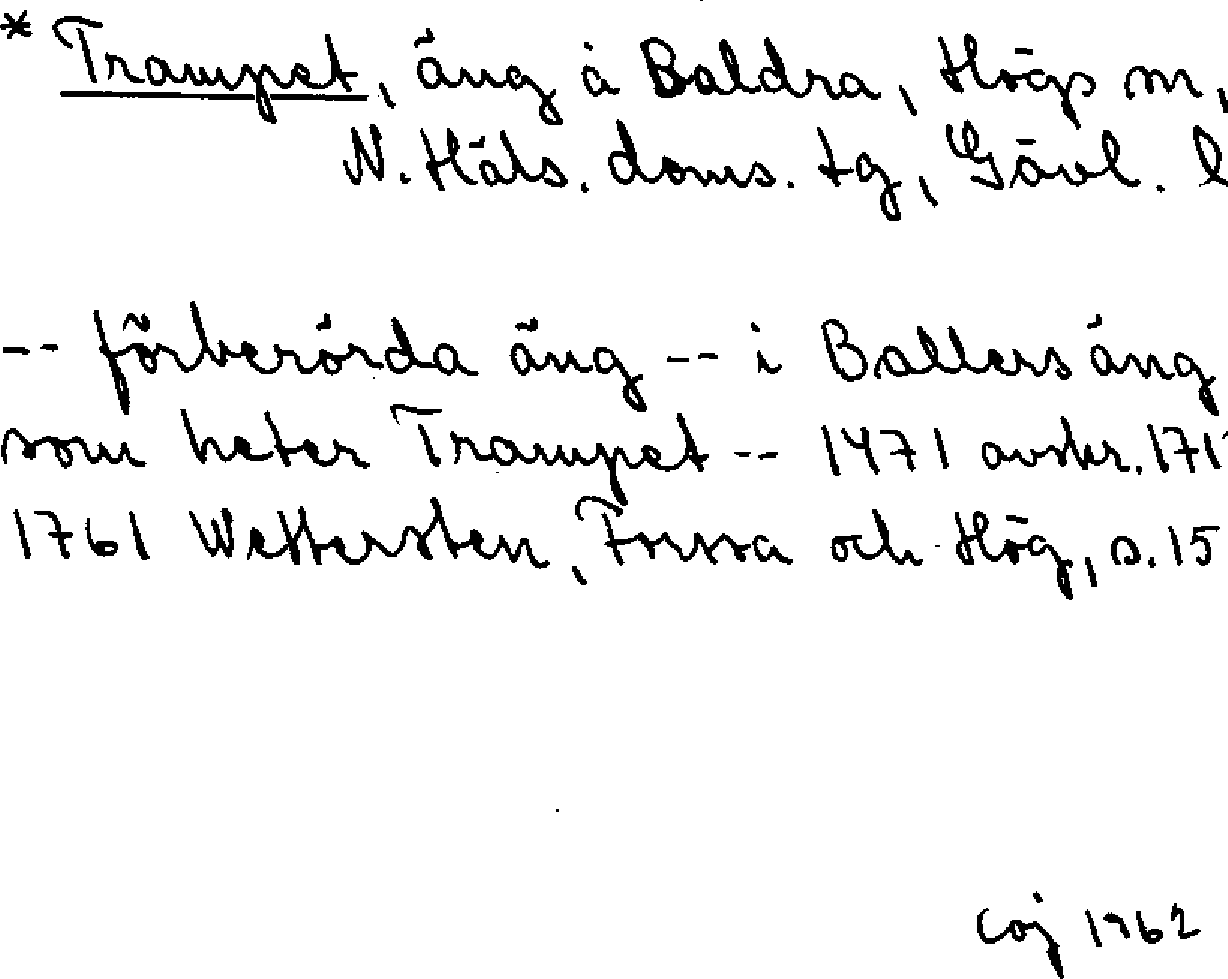 * Trampet, äng å Baldra, Högs sn,
N. Häls. doms. tg, Gävl. l
-- förberörda äng -- i Ballers äng
som heter Trampet -- 1471 avskr. 171
1761 Wettersten, Forssa och Hög, s. 15
Coj 1962